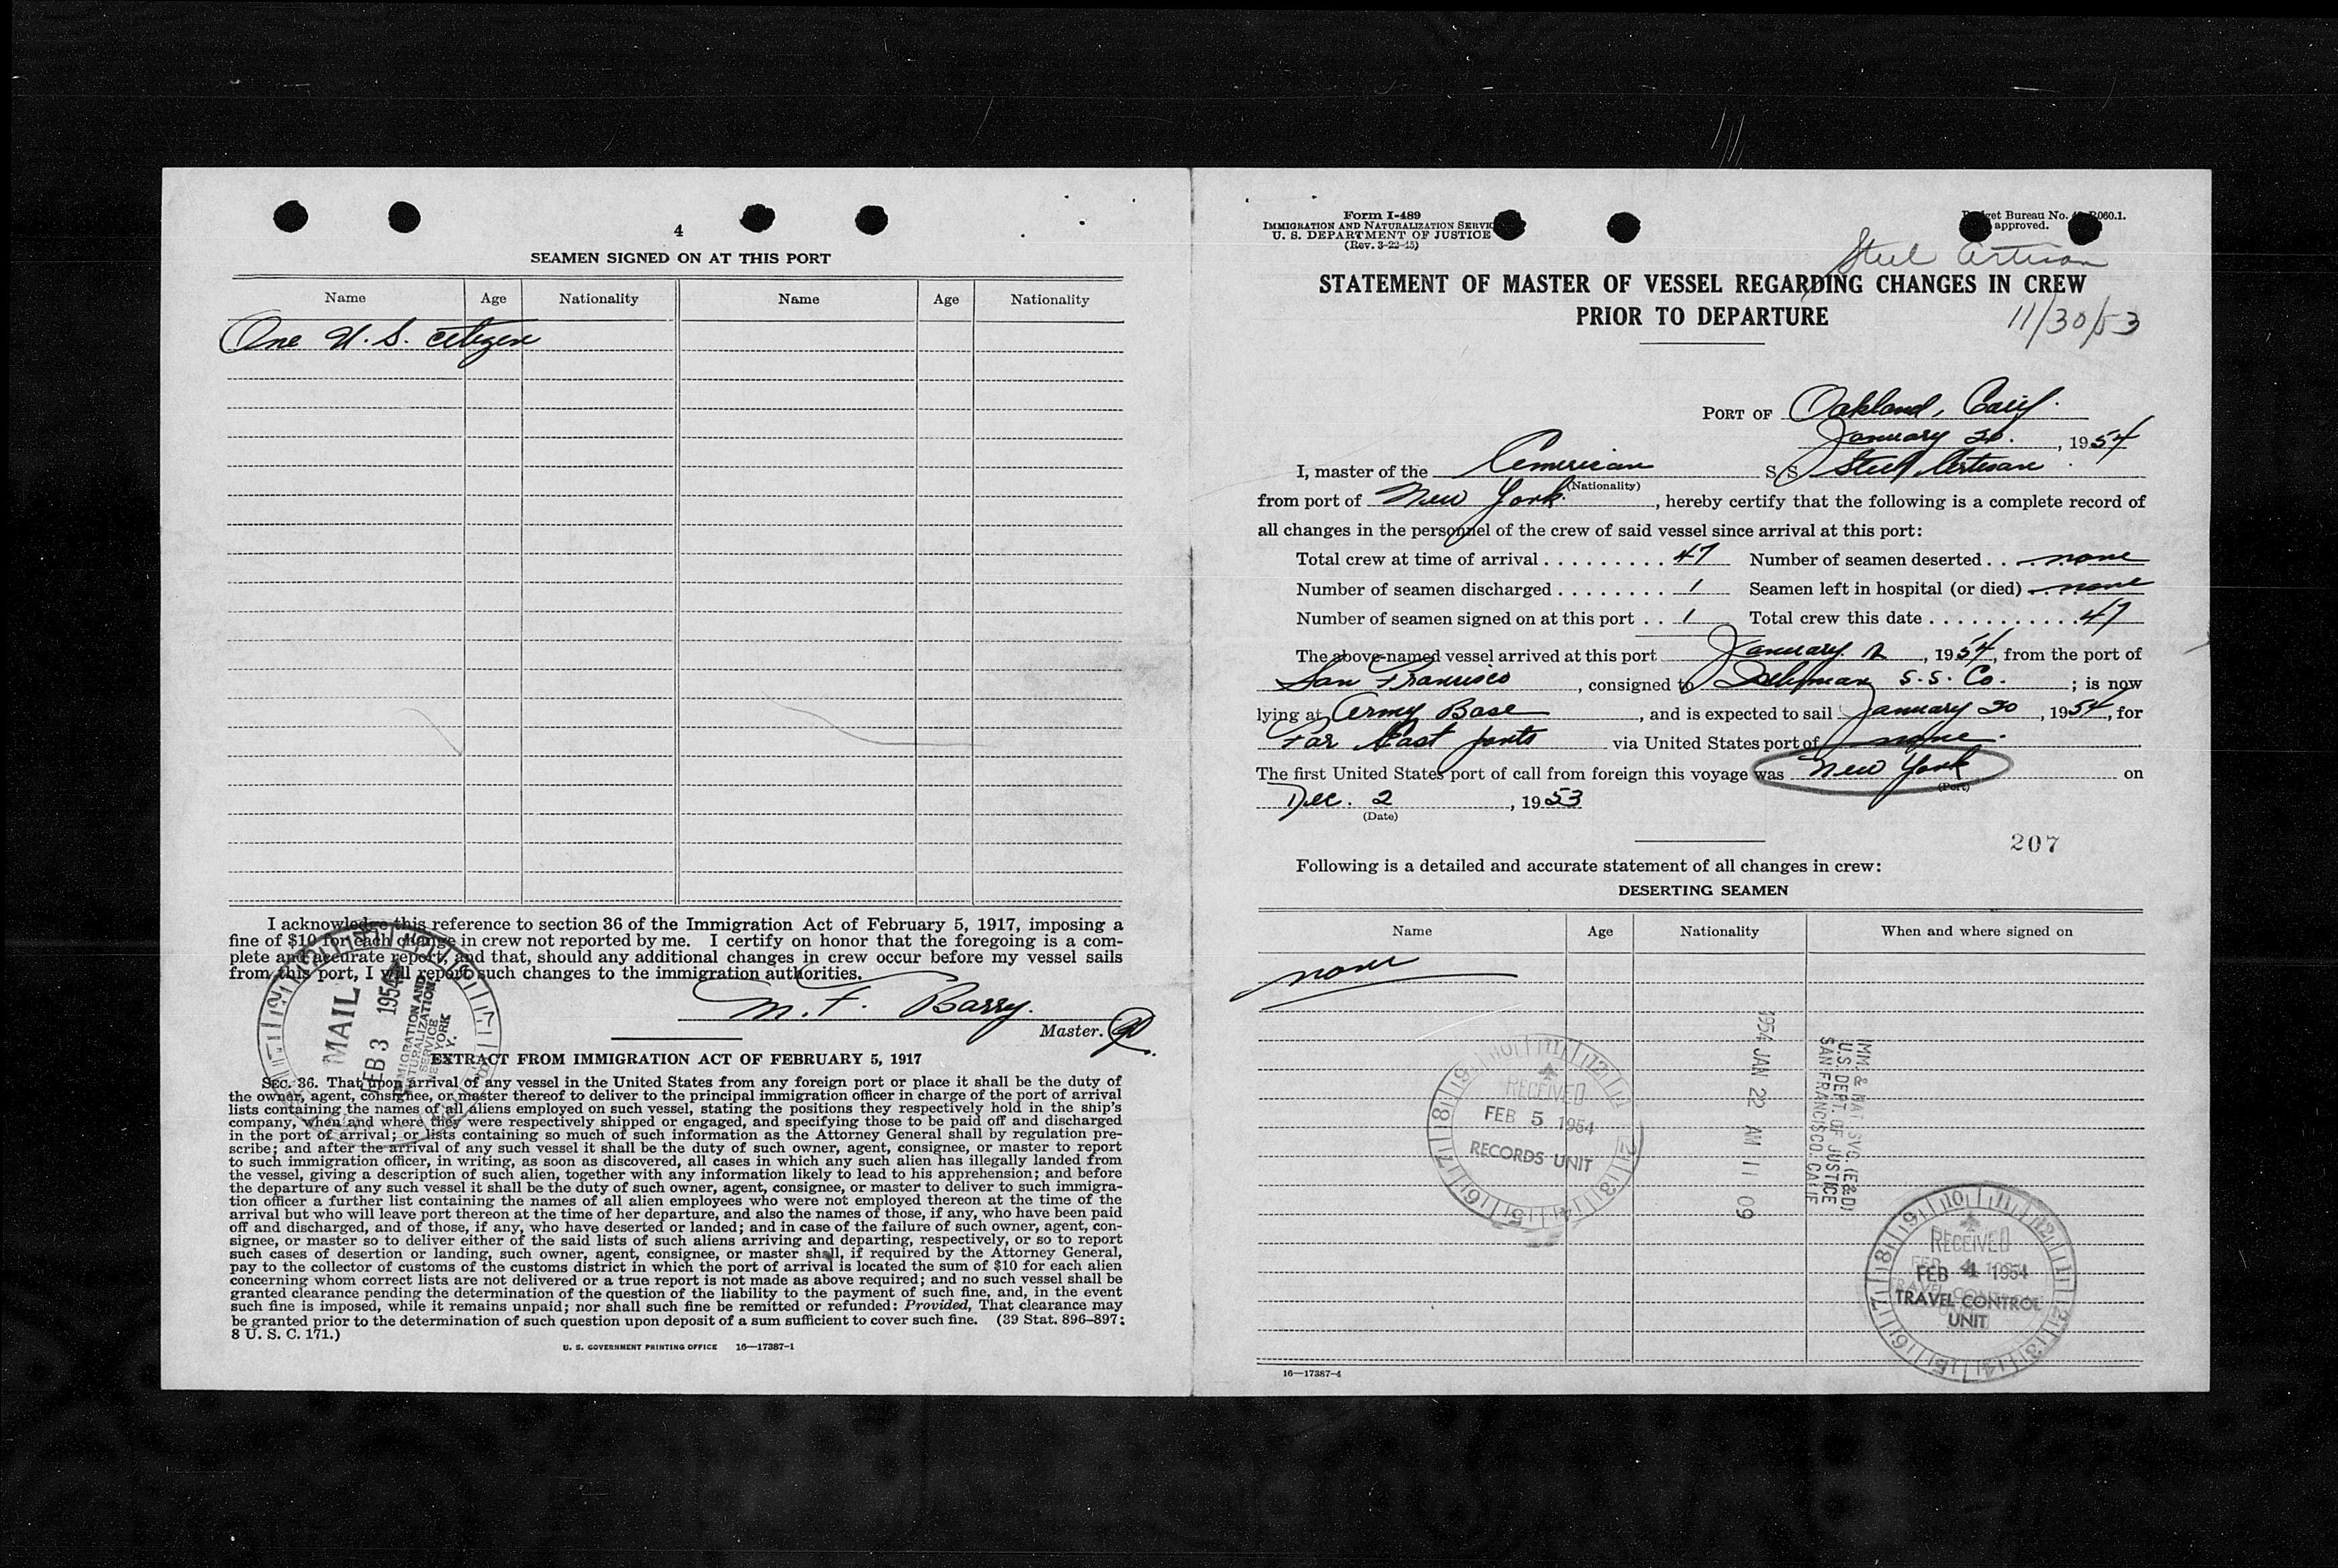 4
SEAMEN SIGNED ON AT THIS PORT
Name Age Nationality Name Age Nationality
One U. S. citizen
I acknowledge this reference to section 36 of the Immigration Act of February 5, 1917, imposing a
fine of $10 for each change in crew not reported by me. I certify on honor that the foregoing is a com-
plete and accurate report, and that, should any additional changes in crew occur before my vessel sails
from this port, I will report such changes to the immigration authorities.
M. F. Barry.
Master.
MAIL
FEB 3 1954
IMMIGRATION AND
NATURALIZATION
SERVICE
NEW YORK
N. Y.
EXTRACT FROM IMMIGRATION ACT OF FEBRUARY 5, 1917
SEC. 36. That upon arrival of any vessel in the United States from any foreign port or place it shall be the duty of
the owner, agent, consignee, or master thereof to deliver to the principal immigration officer in charge of the port of arrival
lists containing the names of all aliens employed on such vessel, stating the positions they respectively hold in the ship's
company, when and where they were respectively shipped or engaged, and specifying those to be paid off and discharged
in the port of arrival; or lists containing so much of such information as the Attorney General shall by regulation pre-
scribe; and after the arrival of any such vessel it shall be the duty of such owner, agent, consignee, or master to report
to such immigration officer, in writing, as soon as discovered, all cases in which any such alien has illegally landed from
the vessel, giving a description of such alien, together with any information likely to lead to his apprehension; and before
the departure of any such vessel it shall be the duty of such owner, agent, consignee, or master to deliver to such immigra-
tion officer a further list containing the names of all alien employees who were not employed thereon at the time of the
arrival but who will leave port thereon at the time of her departure, and also the names of those, if any, who have been paid
off and discharged, and of those, if any, who have deserted or landed; and in case of the failure of such owner, agent, con-
signee, or master so to deliver either of the said lists of such aliens arriving and departing, respectively, or so to report
such cases of desertion or landing, such owner, agent, consignee, or master shall, if required by the Attorney General,
pay to the collector of customs of the customs district in which the port of arrival is located the sum of $10 for each alien
concerning whom correct lists are not delivered or a true report is not made as above required; and no such vessel shall be
granted clearance pending the determination of the question of the liability to the payment of such fine, and, in the event
such fine is imposed, while it remains unpaid; nor shall such fine be remitted or refunded: Provided, That clearance may
be granted prior to the determination of such question upon deposit of a sum sufficient to cover such fine. (39 Stat. 896–897;
8 U. S. C. 171.)
U. S. GOVERNMENT PRINTING OFFICE 16—17387-1
Form I-489
IMMIGRATION AND NATURALIZATION SERVIC
U. S. DEPARTMENT OF JUSTICE
(Rev. 3-22-45)
get Bureau No. R060.1.
approved.
Steel Artisan
STATEMENT OF MASTER OF VESSEL REGARDING CHANGES IN CREW
PRIOR TO DEPARTURE
11/30/53
PORT OF Oakland, Calif.
January 20. , 1954
I, master of the American S. S. Steel Artisan
(Nationality)
from port of New York , hereby certify that the following is a complete record of
all changes in the personnel of the crew of said vessel since arrival at this port:
Total crew at time of arrival . . . . . . . . . 47 Number of seamen deserted . . none
Number of seamen discharged . . . . . . . . 1 Seamen left in hospital (or died) none
Number of seamen signed on at this port . . 1 Total crew this date . . . . . . . . . . . 47
The above-named vessel arrived at this port January , 1954, from the port of
San Francisco , consigned to Isthmian S. S. Co. ; is now
lying at Army Base , and is expected to sail January 20 , 1954, for
Far East ports via United States port of none.
The first United States port of call from foreign this voyage was New York on
(Port)
Dec. 2 , 1953
(Date)
207
Following is a detailed and accurate statement of all changes in crew:
DESERTING SEAMEN
Name Age Nationality When and where signed on
none
1954 JAN 22 AM 11 09
IMM. & NAT. SVC. (E&D)
U.S. DEPT OF JUSTICE
SAN FRANCISCO, CALIF
RECEIVED
FEB 5 1954
RECORDS UNIT
RECEIVED
FEB 4 1954
TRAVEL CONTROL
UNIT
16—17387-4